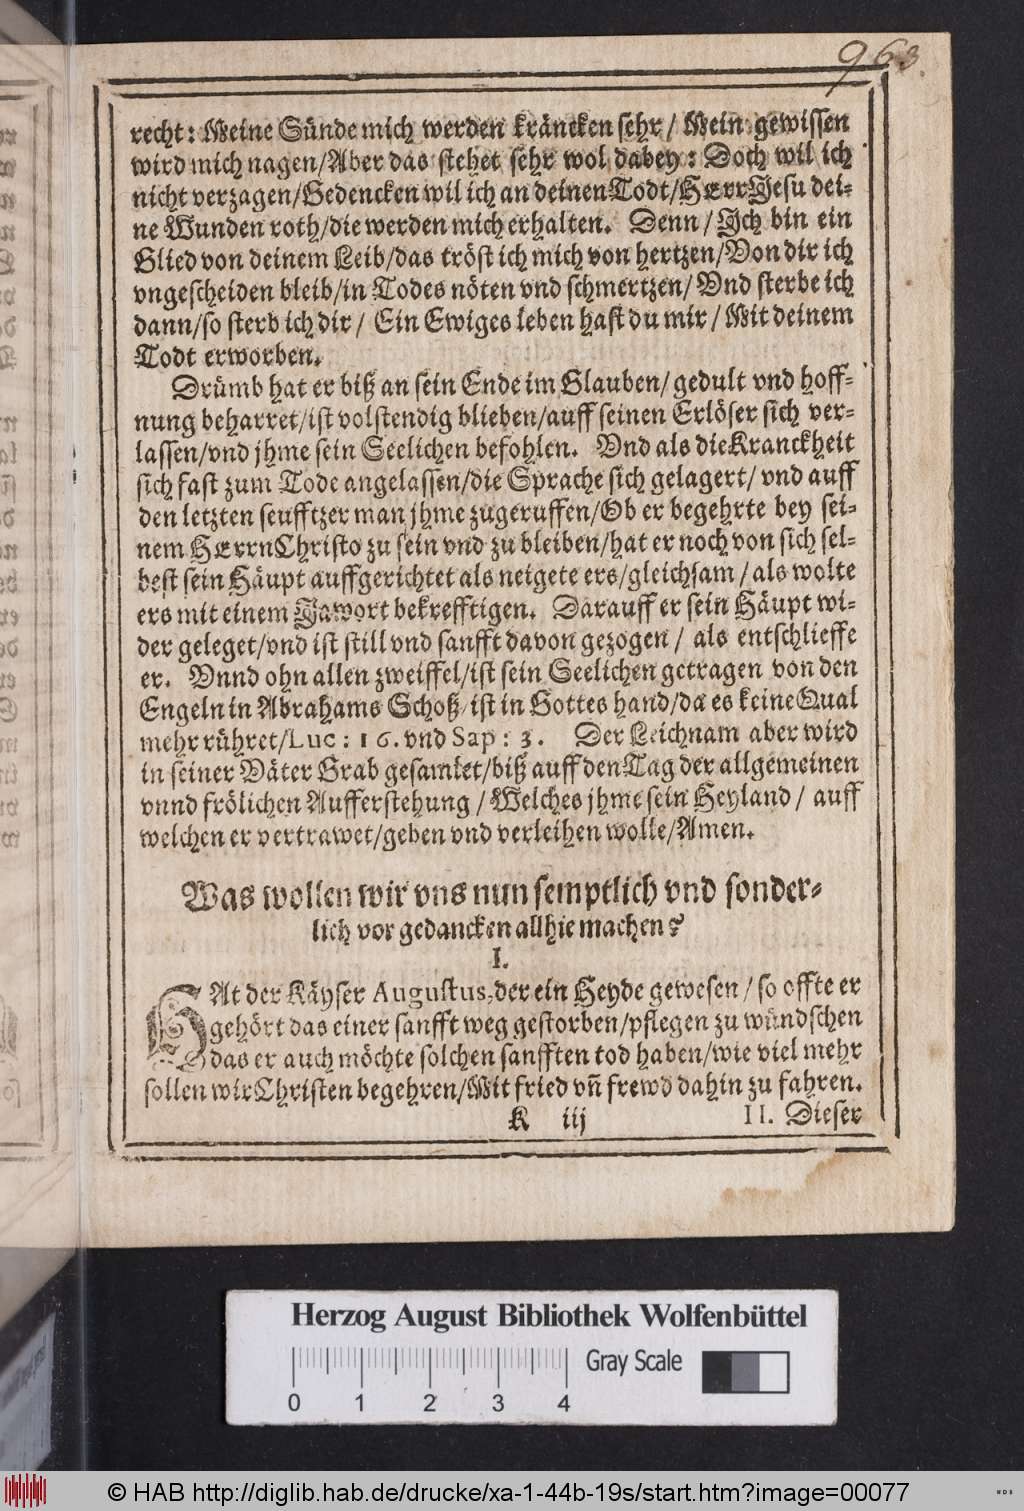 963.
recht: Meine Sünde mich werden kräncken sehr/ Mein gewissen
wird mich nagen/Aber das stehet sehr wol dabey: Doch wil ich
nicht verzagen/Gedencken wil ich an deinen Todt/HErr Jesu dei-
ne Wunden roth/die werden mich erhalten. Denn/ Ich bin ein
Glied von deinem Leib/das tröst ich mich von hertzen/Von dir ich
vngescheiden bleib/in Todes nöten vnd schmertzen/ Vnd sterbe ich
dann/so sterb ich dir/ Ein Ewiges leben hast du mir/ Mit deinem
Todt erworben.
Drümb hat er biß an sein Ende im Glauben/ gedult vnd hoff-
nung beharret/ist volstendig blieben/auff seinen Erlöser sich ver-
lassen/vnd jhme sein Seelichen befohlen. Vnd als die Kranckheit
sich fast zum Tode angelassen/die Sprache sich gelagert/ vnd auff
den letzten seufftzer man jhme zugeruffen/Ob er begehrte bey sei-
nem HErrn Christo zu sein vnd zu bleiben/hat er noch von sich sel-
best sein Häupt auffgerichtet als neigete ers/gleichsam/ als wolte
ers mit einem Jawort bekrefftigen. Darauff er sein Häupt wi-
der geleget/vnd ist still vnd sanfft davon gezogen/ als entschlieffe
er. Vnnd ohn allen zweiffel/ist sein Seelichen getragen von den
Engeln in Abrahams Schoß/ist in Gottes hand/da es keine Qual
mehr rühret/Luc: 16. vnd Sap: 3. Der Leichnam aber wird
in seiner Väter Grab gesamlet/biß auff den Tag der allgemeinen
vnnd frölichen Aufferstehung/ Welches jhme sein Heyland/ auff
welchen er vertrawet/geben vnd verleihen wolle/Amen.
Was wollen wir vns nun semptlich vnd sonder-
lich vor gedancken allhie machen?
I.
HAt der Käyser Augustus, der ein Heyde gewesen/ so offte er
gehört das einer sanfft weg gestorben/pflegen zu wündschen
das er auch möchte solchen sanfften tod haben/wie viel mehr
sollen wir Christen begehren/Mit fried vñ frewd dahin zu fahren.
K iij II. Dieser
Herzog August Bibliothek Wolfenbüttel
Gray Scale
0 1 2 3 4
© HAB http://diglib.hab.de/drucke/xa-1-44b-19s/start.htm?image=00077